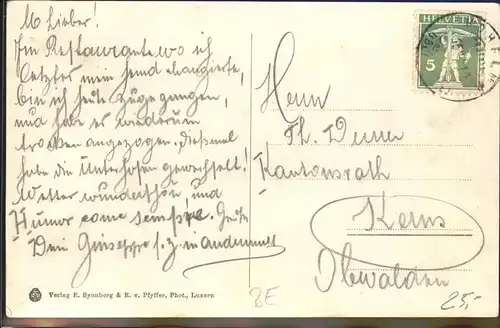 M lieber!
Im Restaurante, wo ich
letztes mein hemd changierte,
bin ich heute zugegangen,
und habe es wiederum
trocken angezogen, diesmal
habe die Unterhosen gewechselt!
Wetter wunderschön, und
Humor come sempre. Grüße
Dein Giuseppe z. Z. in Andermatt
HELVETIA
5
Herrn
Th.
Kantonsrath
Kerns
Obwalden
25,-
BE
Verlag E. Synnberg & R. v. Pfyffer, Phot., Luzern